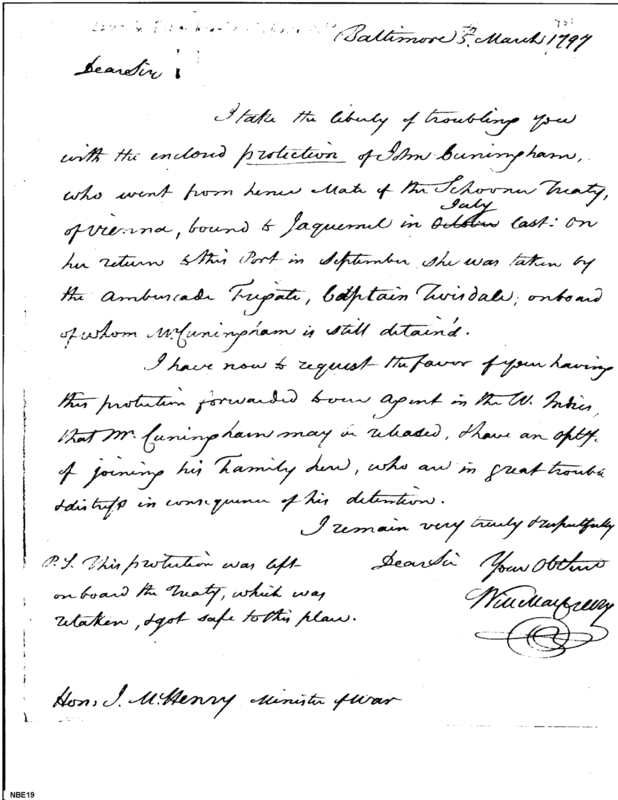 Baltimore 5th. March 1797
Dear Sir
I take the liberty of troubling you
with the enclosed protection of John Cuningham,
who went from hence Mate of the Schooner Treaty,
July
of Vienna, bound to Jaquemel in October last: On
her return to this Port in September she was taken by
the Ambuscade Frigate, Captain Twisdale; onboard
of whom Mr. Cuningham is still detain'd.
I have now to request the favor of your having
this protection forwarded to our agent in the W. Indies,
that Mr. Cuningham may be released, & have an opty.
of joining his Family here, who are in great trouble
& distress in consequence of his detention.
I remain very truly & respectfully
Dear Sir Your Obt Servt
P.S. This protection was left
onboard the Treaty, which was
retaken, & got safe to this place.
Will MacCreery
Hon. J. McHenry Minister of War
NBE19